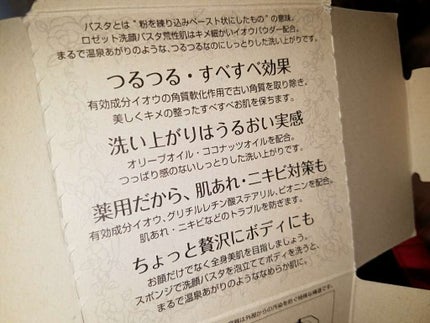 パスタとは“粉を練り込みペースト状にしたもの”の意味。
ロゼット洗顔パスタ荒性肌はキメ細かいイオウパウダー配合。
まるで温泉あがりのような、つるつるなのにしっとりした洗い上がりです。
つるつる・すべすべ効果
有効成分イオウの角質軟化作用で古い角質を取り除き、
美しくキメの整ったすべすべお肌を保ちます。
洗い上がりはうるおい実感
オリーブオイル・ココナッツオイルを配合。
つっぱり感のないしっとりした洗い上がりです。
薬用だから、肌あれ・ニキビ対策も
有効成分イオウ、グリチルレチン酸ステアリル、ピオニンを配合。
肌あれ・ニキビなどのトラブルを防ぎます。
ちょっと贅沢にボディにも
お顔だけでなく全身美肌を目指しましょう。
スポンジで洗顔パスタを泡立ててボディを洗うと、
まるで温泉あがりのようななめらか肌に。